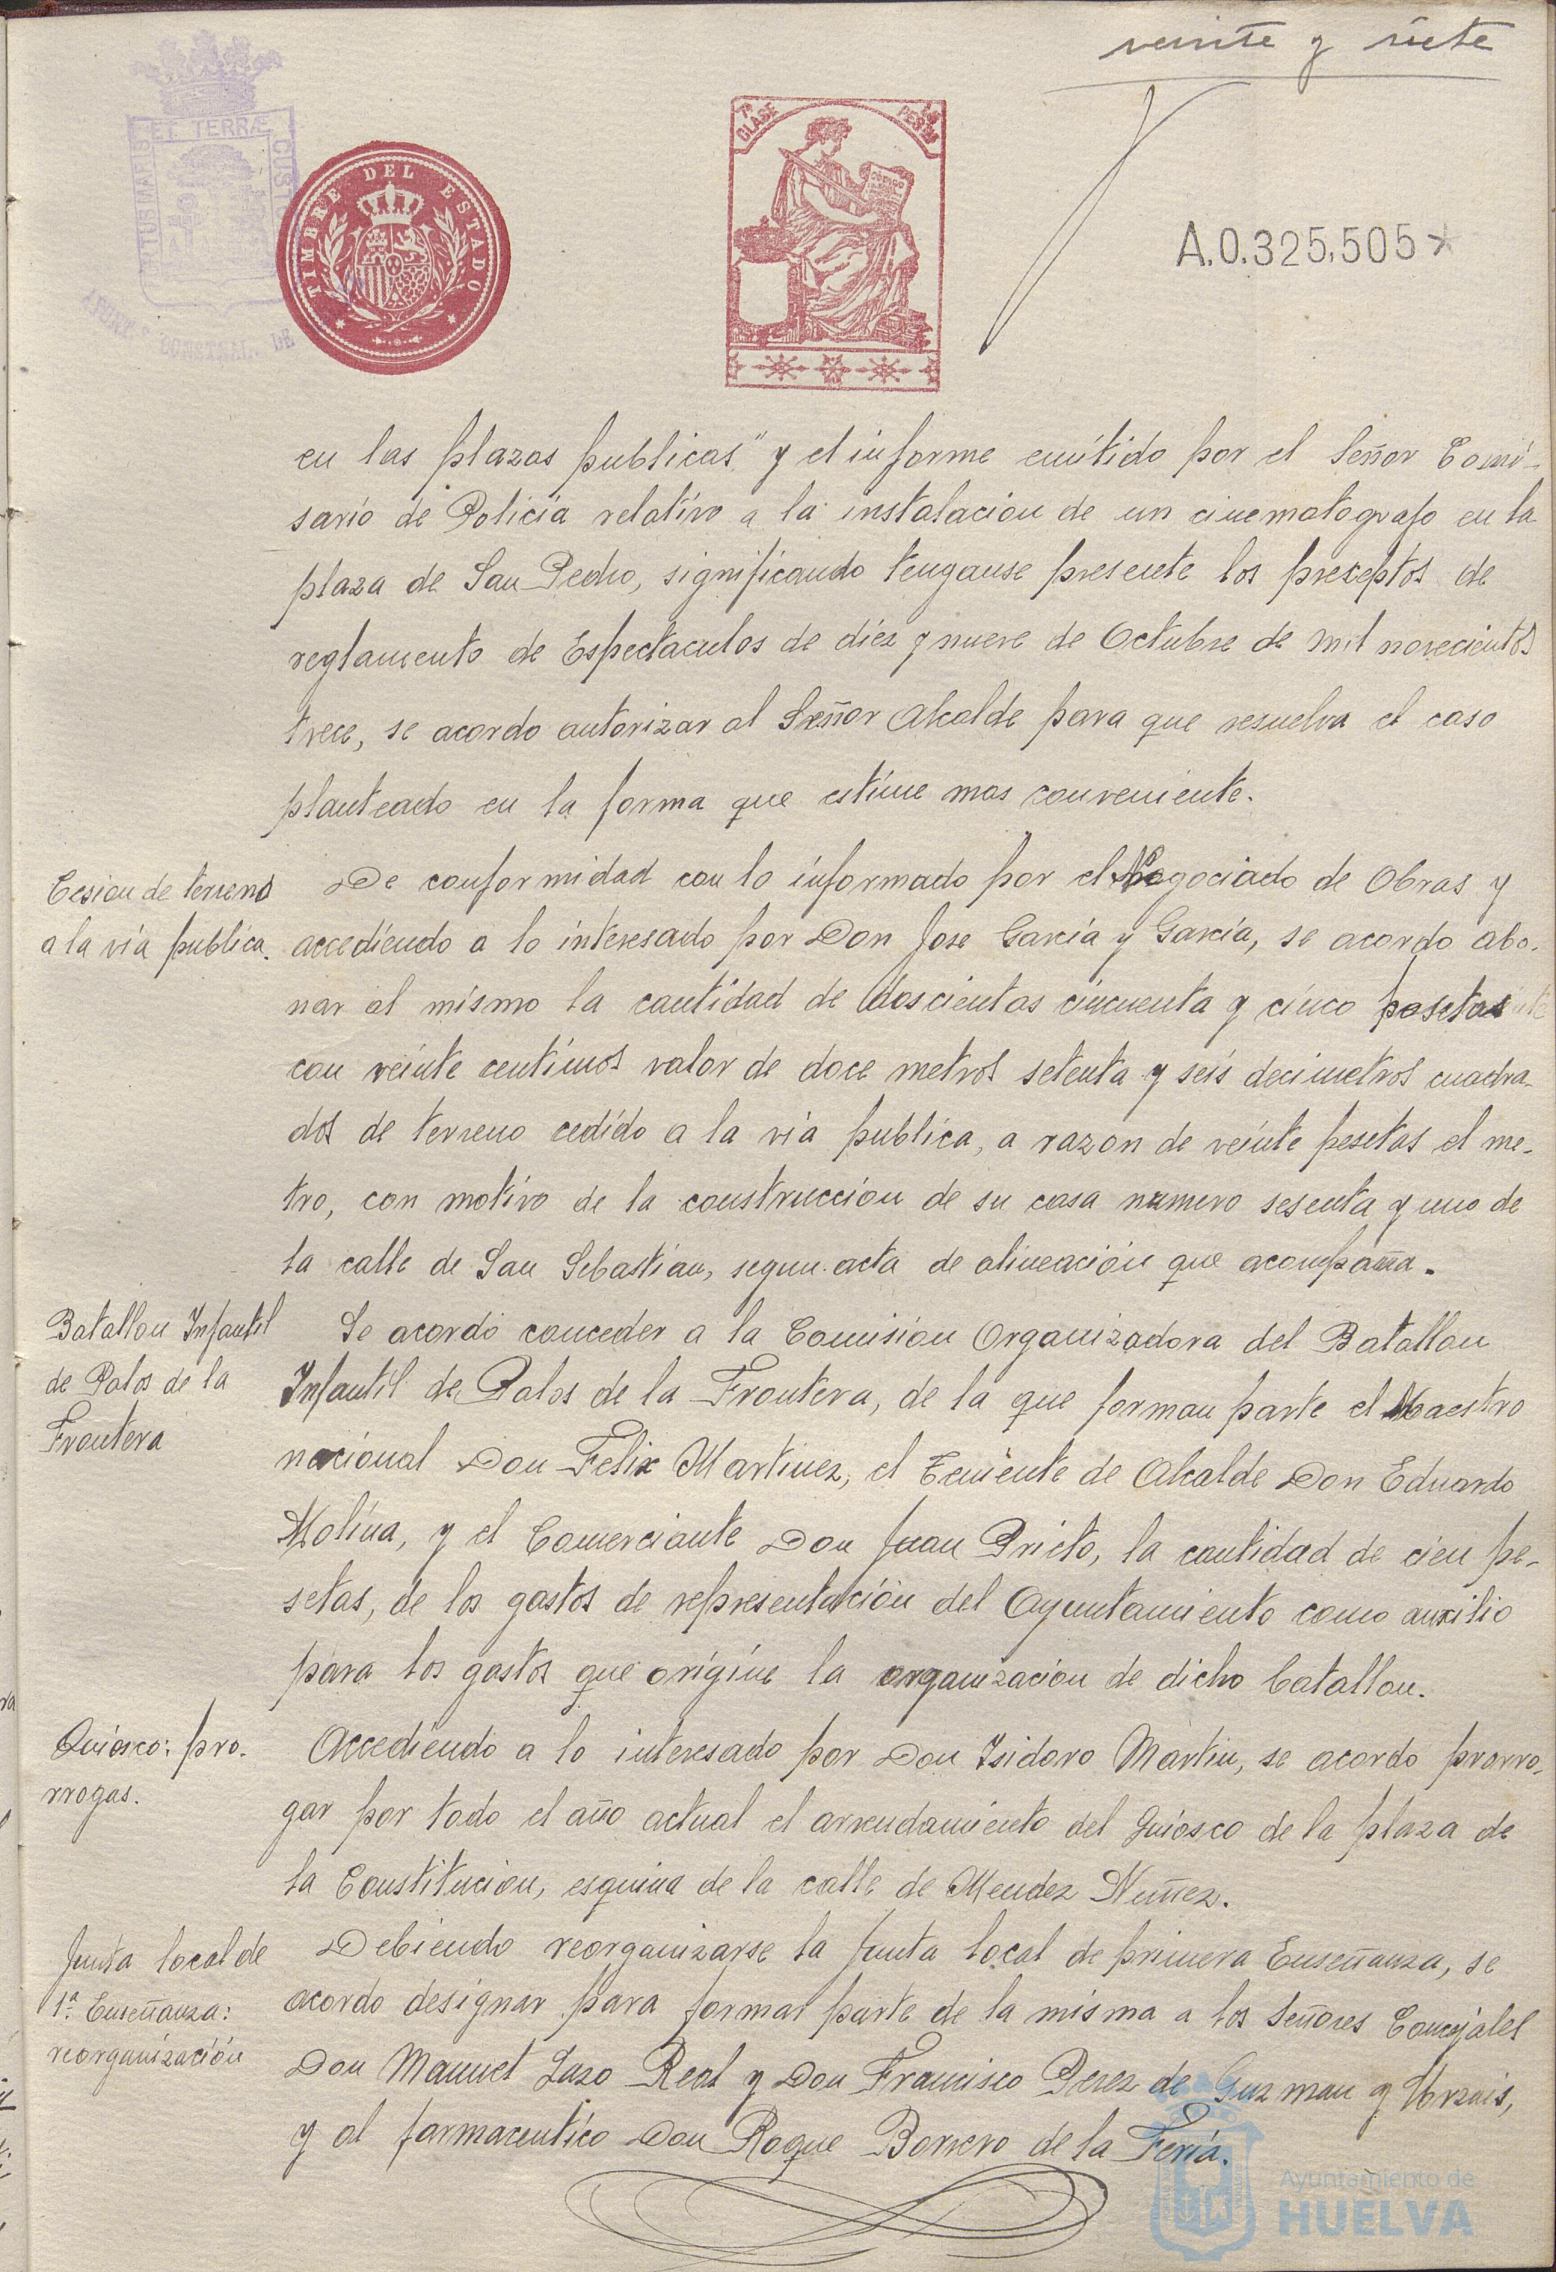 veinte y siete
PORTUS MARIS ET TERRÆ CUSTODIA
AYUNT. CONSTNAL. DE
TIMBRE DEL ESTADO
7ª CLASE
PESTAS
CODIGO
A.0.325,505*
en las plazas publicas" y el informe emitido por el Señor Comi-
sario de Policía relativo a la instalacion de un cinematografo en la
plaza de San Pedro, significando tengause presente los preceptos de
reglamento de Espectaculos de diez y nueve de Octubre de mil novecientos
trece, se acordo autorizar al Señor Alcalde para que resuelva el caso
planteado en la forma que estime mas conveniente.
Cesion de terreno
a la via publica.
De conformidad con lo informado por el Negociado de Obras y
accediendo a lo interesado por Don Jose Garcia y Garcia, se acordo abo-
nar al mismo la cantidad de doscientas cincuenta y cinco pesetas
con veinte centimos valor de doce metros setenta y seis decimetros cuadra-
dos de terreno cedido a la via publica, a razon de veinte pesetas el me-
tro, con motivo de la construccion de su casa numero sesenta y uno de
la calle de San Sebastian, segun acta de alineación que acompaña.
Batallon Infantil
de Palos de la
Frontera
Se acordó conceder a la Comision Organizadora del Batallon
Infantil de Palos de la Frontera, de la que forman parte el Maestro
nacional Don Felix Martinez, el Teniente de Alcalde Don Eduardo
Molina, y el Comerciante Don Juan Prieto, la cantidad de cien pe-
setas, de los gastos de representación del Ayuntamiento como auxilio
para los gastos que origine la organizacion de dicho batallon.
Quiosco: pro-
rrogas.
Accediendo a lo interesado por Don Isidoro Martin, se acordo prorro-
gar por todo el año actual el arrendamiento del quiosco de la plaza de
la Constitucion, esquina de la calle de Mendez Nuñez.
Junta local de
1ª Enseñanza:
reorganización
Debiendo reorganizarse la Junta local de primera Enseñanza, se
acordo designar para formar parte de la misma a los Señores Concejales
Don Manuel Lazo Real y Don Francisco Perez de Guzman y Urzais,
y al farmaceutico Don Roque Borrero de la Feria.
Ayuntamiento de
HUELVA